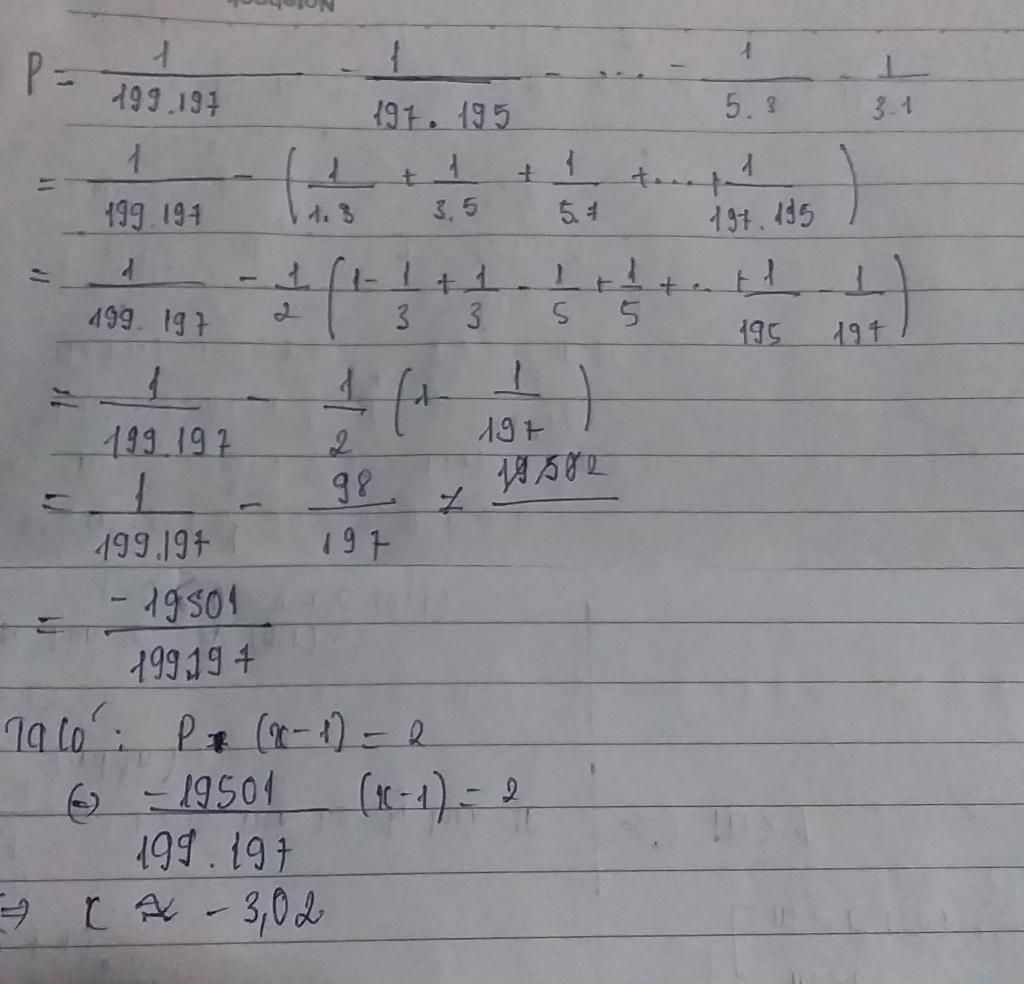 P = 1/(199.197) - 1/(197.195) - ... - 1/(5.3) - 1/(3.1)
= 1/(199.197) - (1/(1.3) + 1/(3.5) + 1/(5.7) + ... + 1/(197.195))
= 1/(199.197) - 1/2 (1 - 1/3 + 1/3 - 1/5 + 1/5 + .. + 1/195 - 1/197)
= 1/(199.197) - 1/2 (1 - 1/197)
= 1/(199.197) - 98/197
= -19501/(199.197)
Ta có: P. (x-1) = 2
⇔ -19501/(199.197) (x-1) = 2
⇒ x ≈ -3,02